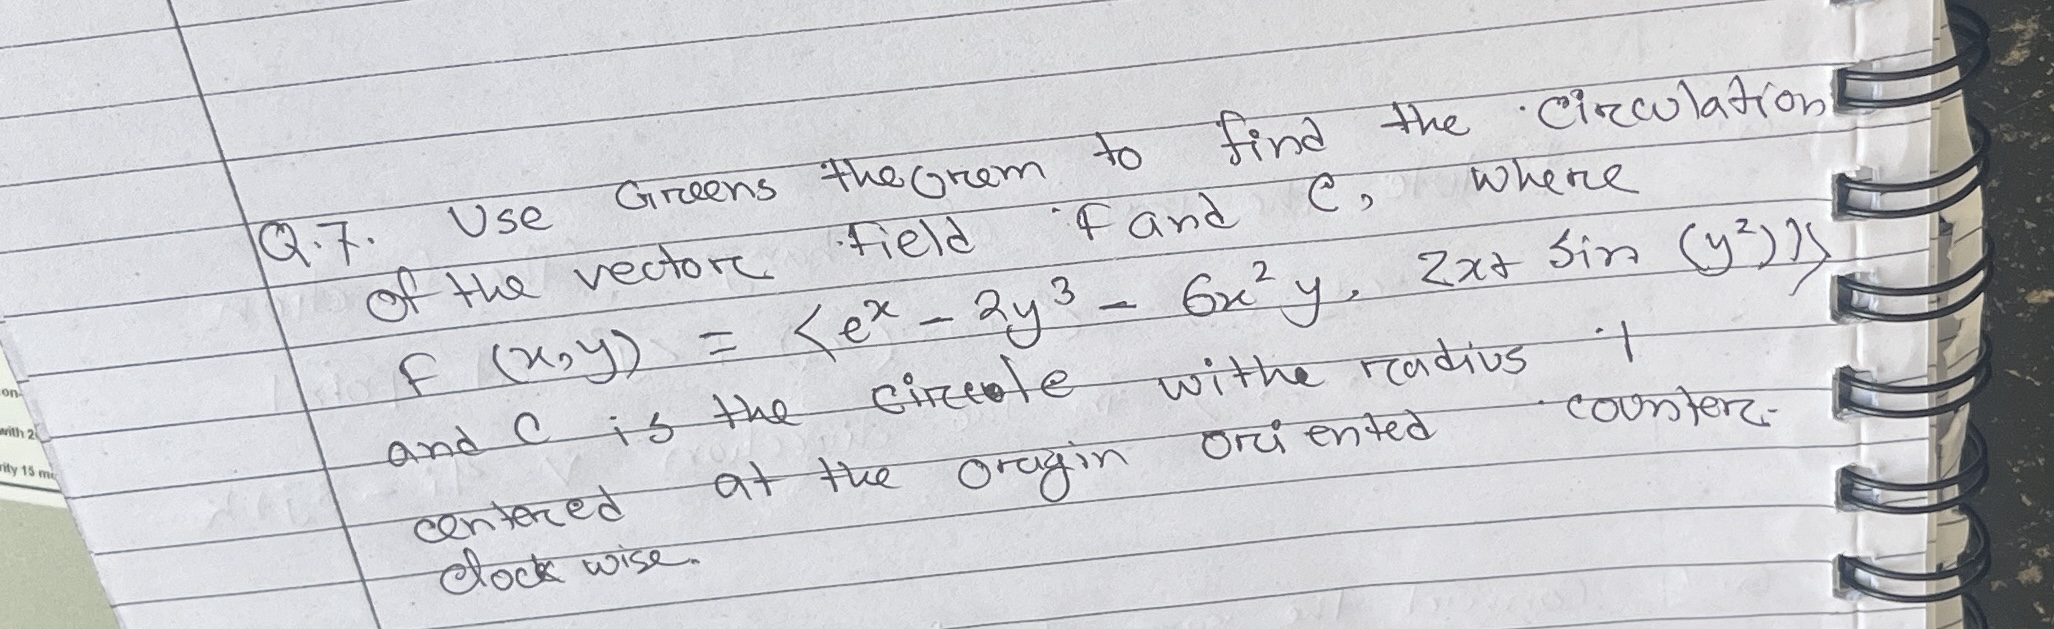 Q.7. Use Greens theorem to find the circulation
of the vector field F and C, where
F (x,y) = <e^x - 2y³ - 6x²y, 2x+ sin (y²)>
and C is the circle withe radius 1
centered at the oragin oriented counter-
clock wise.
on-
with 2
rity 15 m